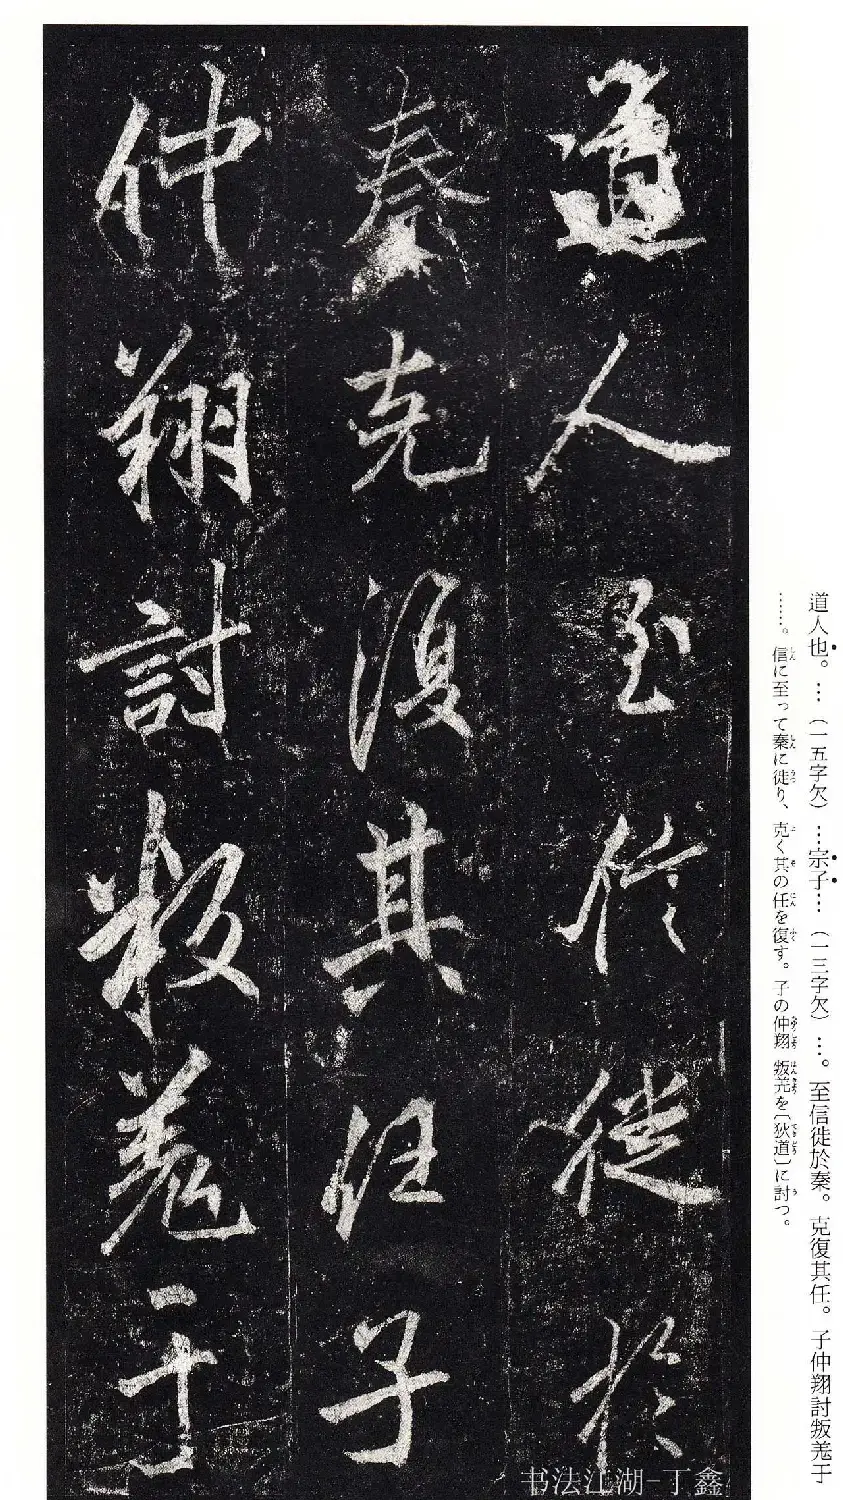 道人至信徙於
秦克復其任子
仲翔討叛羗于
道人也。…（一五字欠）…宗子…（一三字欠）…。至信徙於秦。克復其任。子仲翔討叛羗于
……。信に至って秦に徙り、克く其の任を復す。子の仲翔 叛羗を〔狄道〕に討つ。
书法江湖-丁鑫